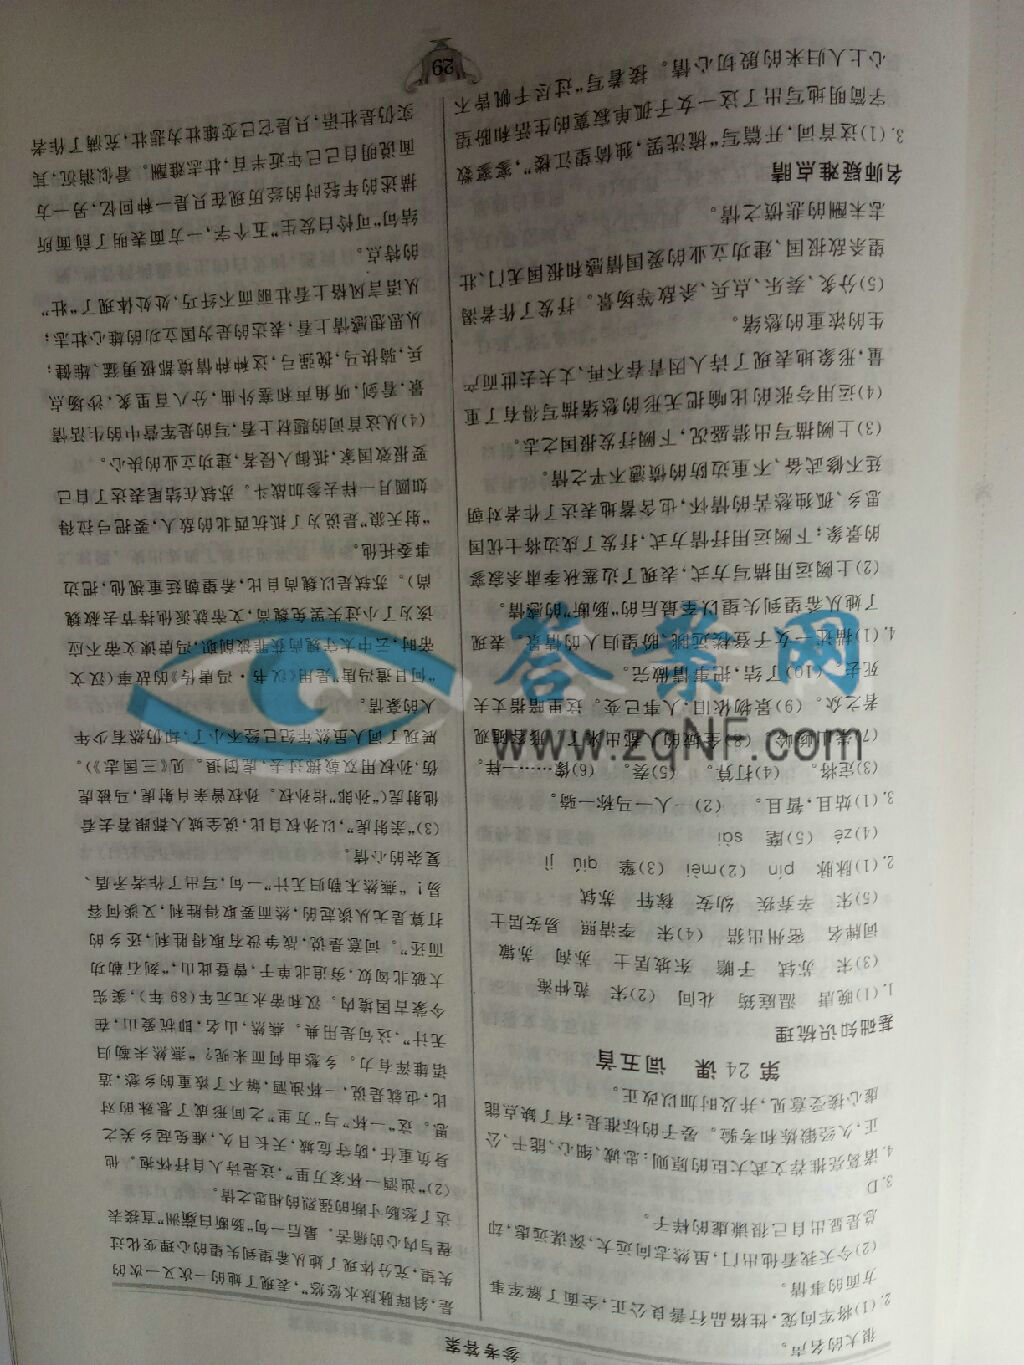 参考答案
很大的名声。
2. (1)将军向宠,性格品行善良公正,全面了解军事
方面的事情。
(2)今天我看他出门,虽然志向远大,深谋远虑,却
总是显出自己很谦虚的样子。
3. D
4. 诸葛亮推荐文武大臣的原则:忠诚、细心、能干、公
正,久经锻炼和考验。晏子的标准是:有了缺点能
虚心接受意见,并及时加以改正。
第24课 词五首
基础知识梳理
1. (1)晚唐 温庭筠 花间 (2)宋 范仲淹
(3)宋 苏轼 子瞻 东坡居士 苏洵 苏辙
词牌名 密州出猎 (4)宋 李清照 易安居士
(5)宋 辛弃疾 幼安 稼轩 苏轼
2. (1)脉脉 pín (2)mèi (3)擎 qiú jǐ
(4)zé (5)麾 sài
3. (1)姑且,暂且。 (2)一人一马称一骑。
(3)定将。 (4)打算。 (5)奏。 (6)像……一样。
者之众。 (9)景物依旧,人事已变。这里暗指丈夫
死去。 (10)了结,把事情做完。
4. (1)描述一女子登楼远眺、盼望归人的情景。表现
了她从希望到失望以至最后的“肠断”的感情。
(2)上阕运用描写方式,表现了边塞秋季肃杀寂寥
的景象;下阕运用抒情方式,抒发了戍边将士忧国
思乡、孤独愁苦的情怀,也含蓄地表达了作者对朝
廷不修武备、不重边防的愤懑不平之情。
(3)上阕描写出猎盛况,下阕抒发报国之志。
(4)运用夸张的比喻把无形的愁绪描写得有了重
量,形象地表现了诗人因青春不再、丈夫去世而产
生的浓重的愁绪。
(5)分炙、奏乐、点兵、杀敌等场景。抒发了作者渴
望杀敌报国、建功立业的爱国情感和报国无门、壮
志未酬的悲愤之情。
名师疑难点睛
3. (1)这首词,开篇写“梳洗罢,独倚望江楼”,寥寥数
字简明地写出了这一女子孤单寂寞的生活和盼望
心上人归来的殷切心情。接着写“过尽千帆皆不
是,斜晖脉脉水悠悠”,表现了她的一次又一次的
失望,充分体现了她从希望到失望的心理变化过
程与内心的痛苦。最后一句“肠断白蘋洲”直接表
达了愁肠寸断的强烈的相思之情。
(2)“浊酒一杯家万里”,这是诗人自抒怀抱。他
身负重任,防守危城,天长日久,难免起乡关之
思。这“一杯”与“万里”之间形成了悬殊的对
比,也就是说,一杯浊酒,解不了浓重的乡愁,造
语雄浑有力。乡愁由何而来呢?“燕然未勒归
无计”,这句是用典。燕然,山名,即杭爱山,在
今蒙古国境内。汉和帝永元元年(89年),窦宪
大破北匈奴,穷追北单于,曾登此山,“刻石勒功
而还”。词意是说,战争没有取得胜利,还乡的
打算是无从谈起的,然而要取得胜利,又谈何容
易!“燕然未勒归无计”一句,写出了作者矛盾、
复杂的心情。
(3)“亲射虎”,以孙权自比,说全城人都跟着去看
他射虎(“孙郎”指孙权。孙权曾亲自射虎,马被虎
伤,孙权用双戟掷过去,虎倒退。见《三国志》)。
展现了词人虽然年纪已经不小了,却仍然有少年
人的豪情。
“何日遣冯唐”是用《汉书·冯唐传》的故事(汉文
帝时,云中太守魏尚获罪被削职,冯唐谏文帝不应
该为了小过失罢免魏尚,文帝就派他持节去赦魏
尚)。苏轼是以魏尚自比,希望朝廷重视他,把边
事委托他。
“射天狼”是说为了抵抗西北的敌人,要把弓拉得
如圆月一样去参加战斗。苏轼在结尾表达了自己
要报效国家,抵御入侵者,建功立业的决心。
(4)从这首词的题材上看,写的是军营中的生活情
景,看剑,听角声和塞外曲,分八百里炙,沙场点
兵,骑快马,挽强弓,这种种情境都极勇猛、雄健;
从思想感情上看,表达的是为国立功的雄心壮志;
从语言风格上看壮丽而不纤巧,处处体现了“壮”
的特点。
结句“可怜白发生”五个字,一方面表明了前面所
描述的年轻时的经历现在只是一种回忆,另一方
面说明自己已年近半百,壮志难酬。看似消沉,其
实仍是壮语,只是它已变雄壮为悲壮,充满了作者
29
答案网
www.zqNF.com